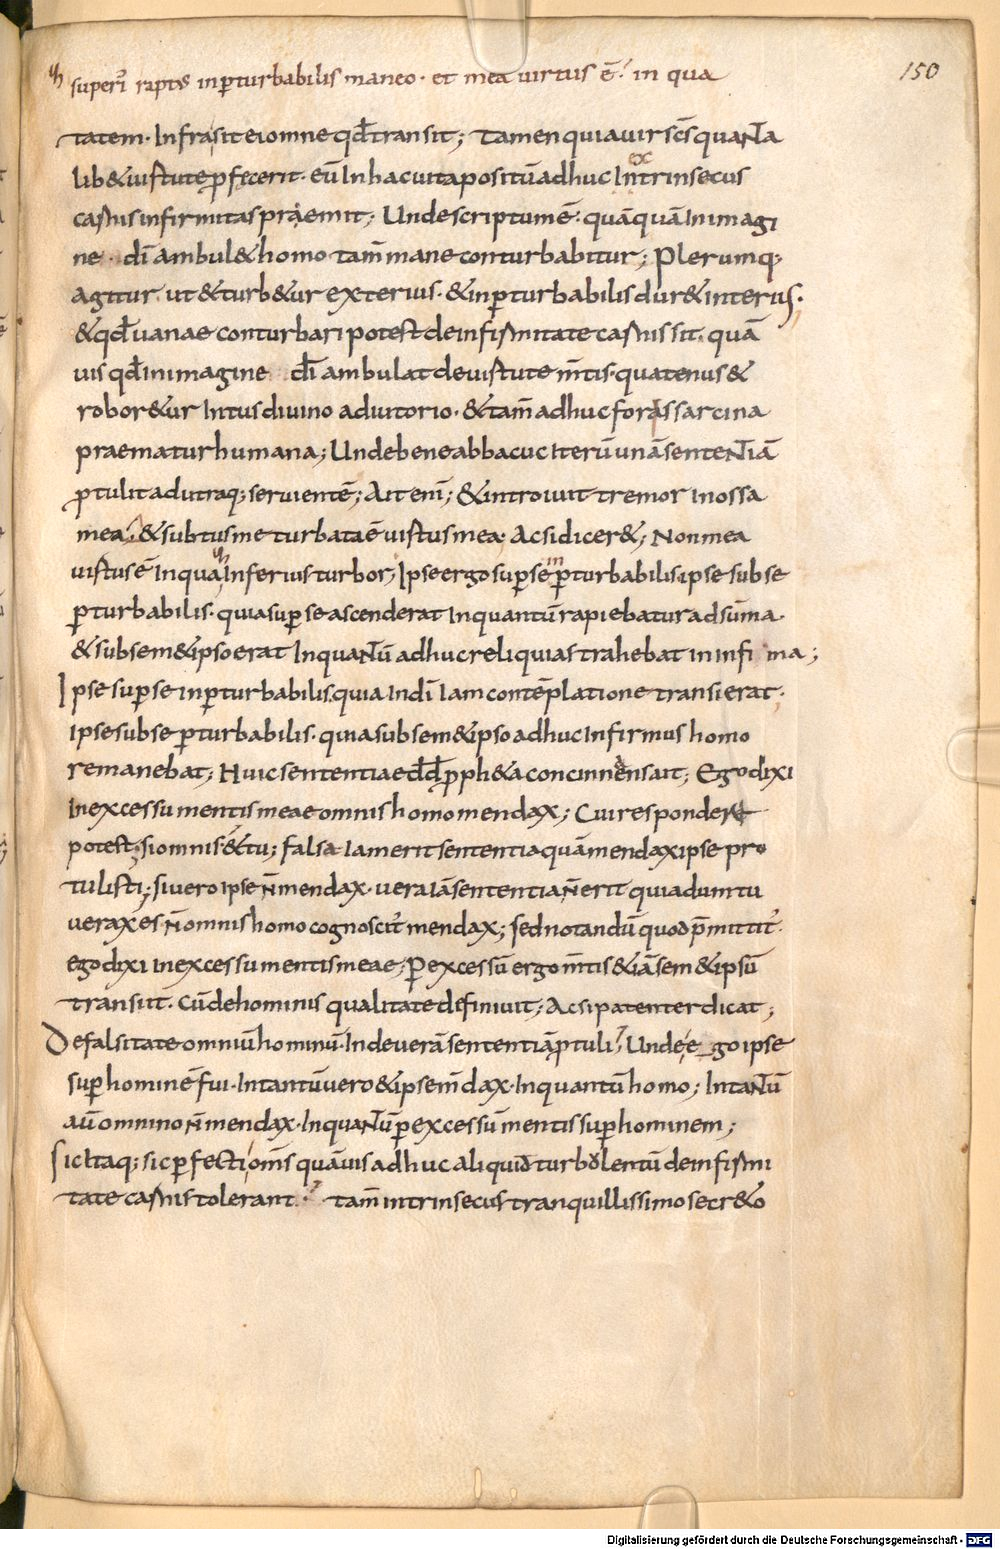 superi' raptus inp̄turbabilis maneo· et mea uirtus ē· in qua
150
tatem· Infra sit ei omne qđ transit; Tamen quia uir sc̄s quanta
lib& uirtute ꝓfecerit· eū In hac uita positū adhuc Intrinsecus
ex
carnis infirmitas praemit; Unde scriptum ē· quāquā In imagi
ne dī ambul& homo tam̄ mane conturbabitur; Plerumq;
agitur ut & turb&ur exterius· & inp̄turbabilis dur& interius·
& qđ uanae conturbari potest de infirmitate carnis sit· quā
uis qđ in imagine dī ambulat de uirtute m̄tis· quatenus &
robor&ur Intus diuino adiutorio· & tam̄ adhuc foras sarcina
praematur humana; Unde bene abbacuc Iterū unā sententiā
ꝓtulit ad utraq; seruientē; Ait eni͂; & introiuit tremor In ossa
mea· & subtus me turbata ē uirtus mea; Ac si dicer&; Non mea
uirtus ē In qua Inferius turbor; Ipse ergo sup̱ se in p̱turbabilis ipse sub se
p̱turbabilis· quia sup̱ se ascenderat In quantū rapiebatur ad sūma·
& sub sem&ipso erat In quantū adhuc reliquias trahebat in infi ma;
Ipse sup̱ se inp̱turbabilis· quia In dī Iam contēplatione transierat·
Ipse sub se p̱turbabilis· quia sub sem&ipso adhuc Infirmus homo
remanebat; Huic sententiae dđ ꝓph&a concinnens ait; Ego dixi
In excessu mentis meae omnis homo mendax; Cui responderi
potest; si omnis & tu; falsa Iam erit sententia quā mendax ipse pro
tulisti; si uero Ipse n̄ mendax· uera Iā sententia n̄ erit quia dum tu
uerax es n̄ omnis homo cognoscit' mendax; sed notandū quod p̄mittit'·
ego dixi In excessu mentis meae; P̱ excessū ergo m̄tis & iā sem&ipsū
transiit· cū de hominis qualitate definiuit; Ac si patenter dicat;
De falsitate omniū hominū· Inde uerā sententiā ꝓtuli; Unde ego ipse
sup̱ hominē fui· In tantū uero & ipse m̄dax· In quantū homo; In tantū
aū omnino n̄ mendax· In quantū p̱ excessū mentis sup̱ hominem;
Sic Itaq; sic p̱fecti om̄s quāuis adhuc aliquid turbolentū de infirmi
tate carnis tolerant· tam̄ intrinsecus tranquillissimo secr&o
Digitalisierung gefördert durch die Deutsche Forschungsgemeinschaft - DFG